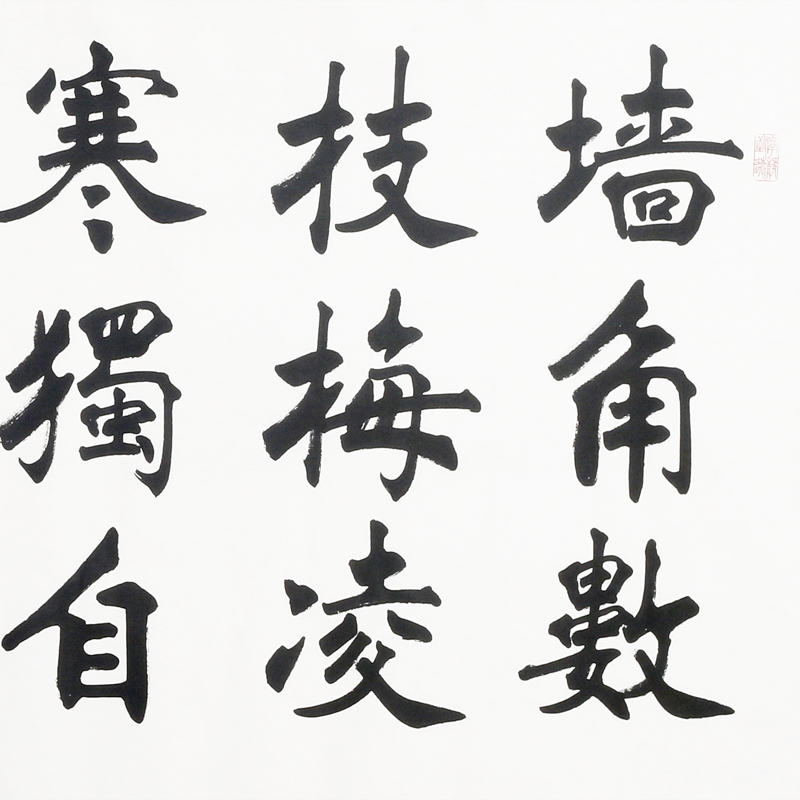 墙角數
枝梅凌
寒獨自